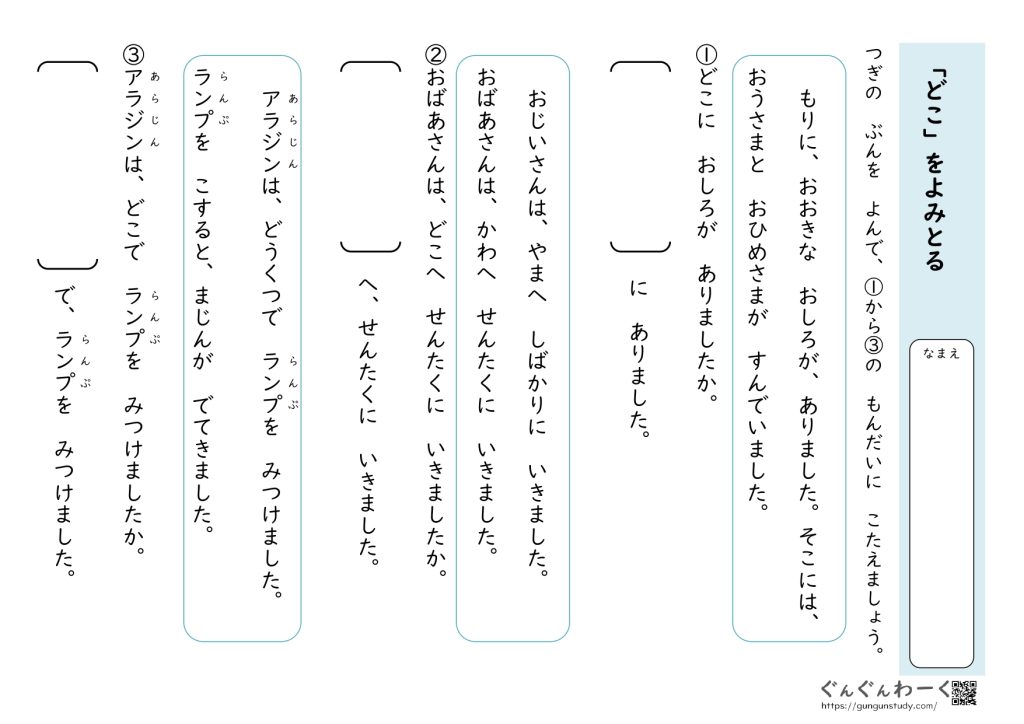 「どこ」をよみとる
なまえ
つぎの　ぶんを　よんで、①から③の　もんだいに　こたえましょう。
もりに、おおきな　おしろが、ありました。そこには、
おうさまと　おひめさまが　すんでいました。
①どこに　おしろが　ありましたか。
に　ありました。
おじいさんは、やまへ　しばかりに　いきました。
おばあさんは、かわへ　せんたくに　いきました。
②おばあさんは、どこへ　せんたくに　いきましたか。
へ、せんたくに　いきました。
あらじん　らんぷ
アラジンは、どうくつで　ランプを　みつけました。
らんぷ
ランプを　こすると、まじんが　でてきました。
あらじん　らんぷ
③アラジンは、どこで　ランプを　みつけましたか。
らんぷ
で、ランプを　みつけました。
ぐんぐんわーく
https://gungunstudy.com/